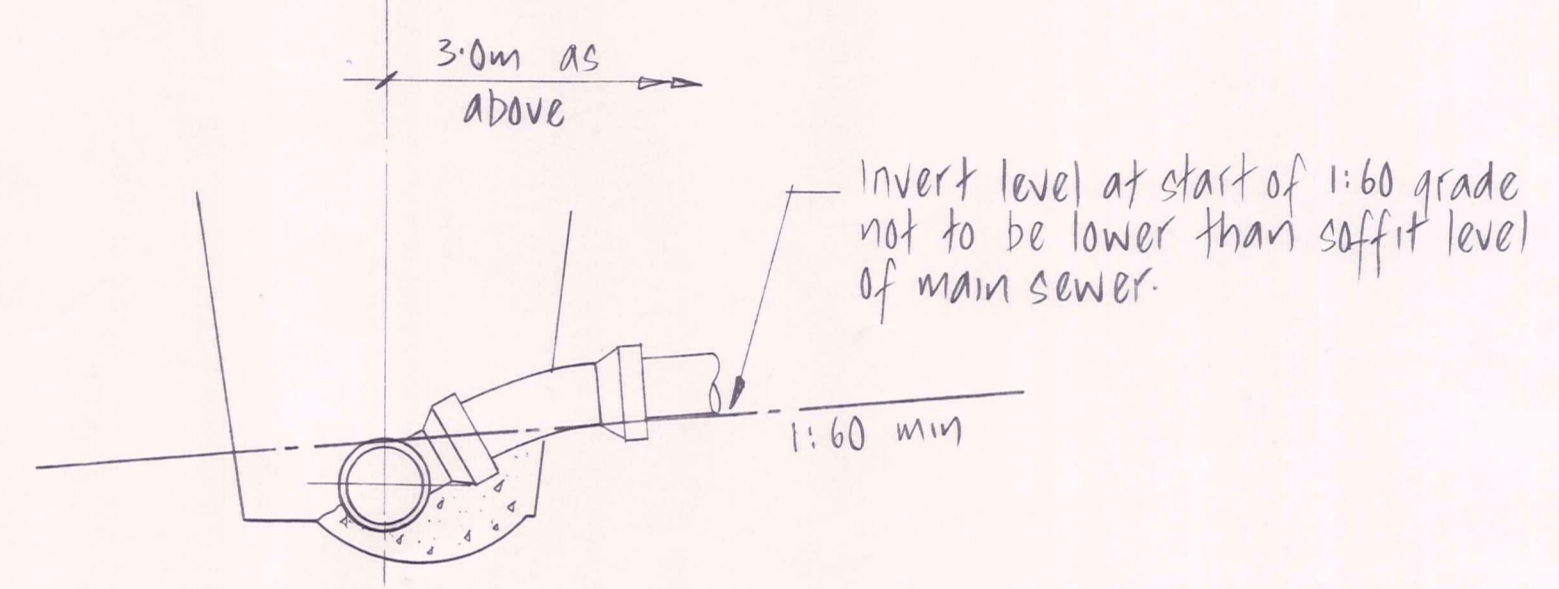 3.0m as
above
Invert level at start of 1:60 grade
not to be lower than soffit level
of main sewer.
1:60 min